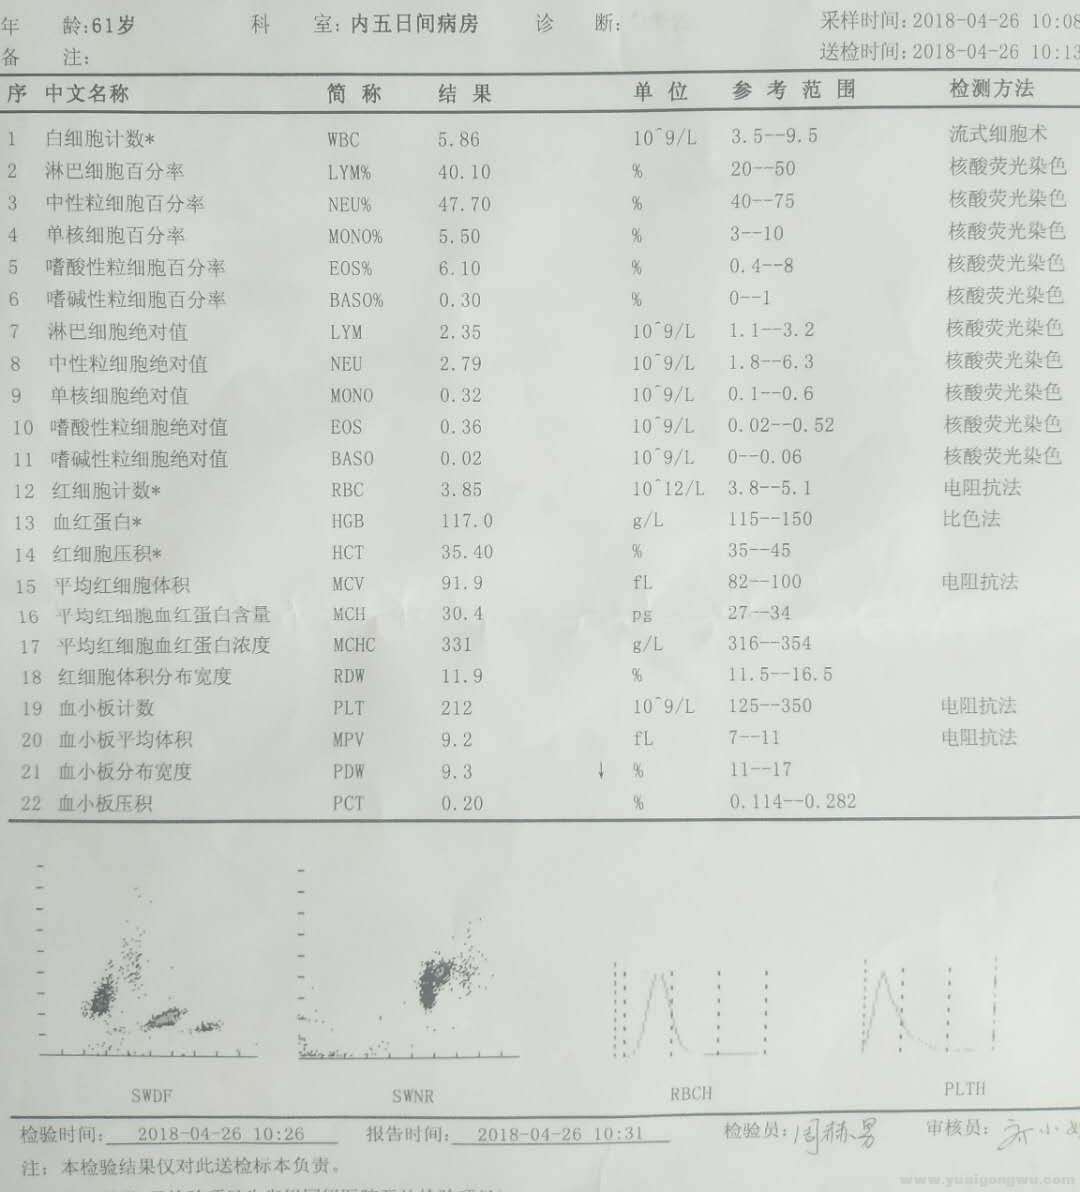 年 龄:61岁 科 室:内五日间病房 诊 断: 采样时间:2018-04-26 10:08
备 注: 送检时间:2018-04-26 10:13
序 中文名称 简 称 结 果 单 位 参 考 范 围 检测方法
1 白细胞计数* WBC 5.86 10^9/L 3.5--9.5 流式细胞术
2 淋巴细胞百分率 LYM% 40.10 % 20--50 核酸荧光染色
3 中性粒细胞百分率 NEU% 47.70 % 40--75 核酸荧光染色
4 单核细胞百分率 MONO% 5.50 % 3--10 核酸荧光染色
5 嗜酸性粒细胞百分率 EOS% 6.10 % 0.4--8 核酸荧光染色
6 嗜碱性粒细胞百分率 BASO% 0.30 % 0--1 核酸荧光染色
7 淋巴细胞绝对值 LYM 2.35 10^9/L 1.1--3.2 核酸荧光染色
8 中性粒细胞绝对值 NEU 2.79 10^9/L 1.8--6.3 核酸荧光染色
9 单核细胞绝对值 MONO 0.32 10^9/L 0.1--0.6 核酸荧光染色
10 嗜酸性粒细胞绝对值 EOS 0.36 10^9/L 0.02--0.52 核酸荧光染色
11 嗜碱性粒细胞绝对值 BASO 0.02 10^9/L 0--0.06 核酸荧光染色
12 红细胞计数* RBC 3.85 10^12/L 3.8--5.1 电阻抗法
13 血红蛋白* HGB 117.0 g/L 115--150 比色法
14 红细胞压积* HCT 35.40 % 35--45
15 平均红细胞体积 MCV 91.9 fL 82--100 电阻抗法
16 平均红细胞血红蛋白含量 MCH 30.4 pg 27--34
17 平均红细胞血红蛋白浓度 MCHC 331 g/L 316--354
18 红细胞体积分布宽度 RDW 11.9 % 11.5--16.5
19 血小板计数 PLT 212 10^9/L 125--350 电阻抗法
20 血小板平均体积 MPV 9.2 fL 7--11 电阻抗法
21 血小板分布宽度 PDW 9.3 ↓ % 11--17
22 血小板压积 PCT 0.20 % 0.114--0.282
SWDF SWNR RBCH PLTH
检验时间: 2018-04-26 10:26 报告时间: 2018-04-26 10:31 检验员: 审核员:
注: 本检验结果仅对此送检标本负责。
www.yuaigongwu.com